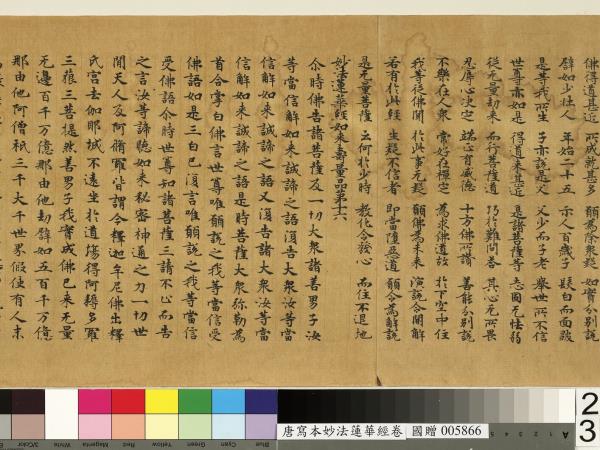 佛得道甚近 所成就甚多 願為除衆疑 如實分別說
譬如少壯人 年始二十五 示人百歲子 髮白而面皺
是等我所生 子亦說是父 父少而子老 舉世所不信
世尊亦如是 得道來甚近 是諸菩薩等 志固无怯弱
從无量劫來 而行菩薩道 巧於難問答 其心无所畏
忍辱心決定 端正有威德 十方佛所讚 善能分別說
不樂在人衆 常好在禪定 為求佛道故 於下空中住
我等從佛聞 於此事无疑 願佛為未來 演說令開解
若有於此經 生疑不信者 即當墮惡道 願今為解說
是无量菩薩 云何於少時 教化令發心 而住不退地
妙法蓮華經如來壽量品第十六
尒時佛告諸菩薩及一切大衆諸善男子汝
等當信解如來誠諦之語復告大衆汝等當
信解如來誠諦之語又復告諸大衆汝等當
信解如來誠諦之語是時菩薩大衆弥勒為
首合掌白佛言世尊唯願說之我等當信受
佛語如是三白已復言唯願說之我等當信
受佛語尒時世尊知諸菩薩三請不止而告
之言汝等諦聽如來秘密神通之力一切世
間天人及阿脩羅皆謂今釋迦牟尼佛出釋
氏宮去伽耶城不遠坐於道塲得阿耨多羅
三藐三菩提然善男子我實成佛已來无量
无邊百千万億那由他劫譬如五百千万億
那由他阿僧祇三千大千世界假使有人末
3/Color White Magenta Red Yellow Green Cyan Blue
唐寫本妙法蓮華經卷 國贈 005866
A
2
3